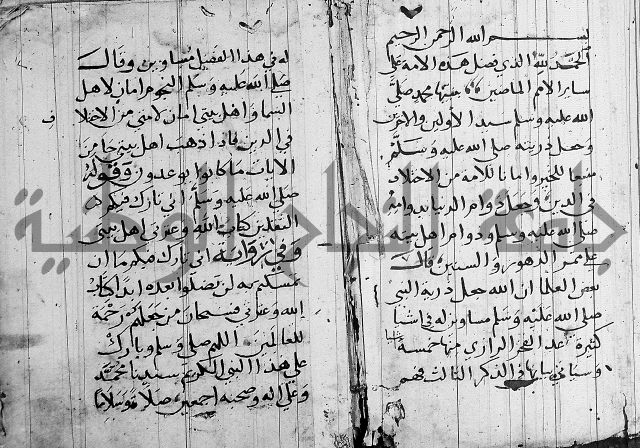 بسم الله الرحمن الرحيم
الحمد لله الذي فضل هذه الامة على
ساير الامم الماضين بنبيها محمد صلى
الله عليه وسلم سيد الأولين والاخرين
وجعل ذريته صلى الله عليه وسلم
منبعا للخير وامانا للامة من الاختلاف
في الدين وجعل دوام الدنيا بدوامه
صلى الله عليه وسلم ودوام اهل بيته
على ممر الدهور والسنين قال
بعض العلما ان الله جعل ذرية النبي
صلى الله عليه وسلم مساوين له في اشيا
كثيرة عد الفخر الرازي منها خمسة اشيا
وسياتي بيانها في الذكر الثالث فهم
له في هذا الفضل مساوين وقال
صلى الله عليه وسلم النجوم امان لاهل
السما واهل بيتي امان لامتي من الاختلا
ف
في الدين فاذا ذهب اهل بيتي جا من
الايات ما كانوا يوعدون وقوله
صلى الله عليه وسلم اني تارك فيكم
الثقلين كتاب الله وعترتي اهل بيتي
وفي رواية اني تارك فيكم ما ان
تمسكتم به لن تضلوا بعده ابدا كتاب
الله وعترتي فسبحان من جعلهم رحمة
للعالمين اللهم صلي وسلم وبارك
على هذا النبي الكريم سيدنا محمد
وعلى اله وصحبه اجمعين صلاة وسلاما